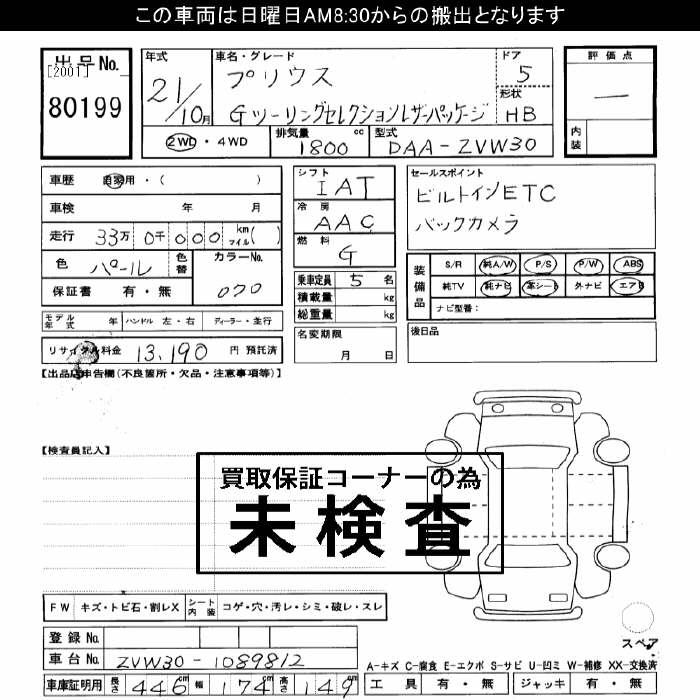 この車両は日曜日AM8:30からの搬出となります
出品No. [2001] 80199
年式 21/10月
車名・グレード プリウス
Gツーリングセレクションレザーパッケージ
ドア 5
形状 HB
評価点 —
内装
2WD・4WD 排気量 1800 cc 型式 DAA-ZVW30
車歴 自家用・( )
車検 年 月
走行 33万 0千 000 km マイル( )
色 パール 色替 カラーNo. 070
保証書 有・無
モデル年式 年 ハンドル 左・右 ディーラー・並行
リサイクル料金 13,190 円 預託済
シフト IAT
冷房 AAC
燃料 G
乗車定員 5 名
積載量 kg
総重量 kg
名変期限 月 日
セールスポイント
ビルトインETC
バックカメラ
装備品 S/R 純A/W P/S P/W ABS
純TV 純ナビ 革シート 外ナビ エアB
ナビ型番:
後日品
【出品店申告欄(不良箇所・欠品・注意事項等)】
【検査員記入】
買取保証コーナーの為
未検査
FW キズ・トビ石・割レX シート内装 コゲ・穴・汚レ・シミ・破レ・スレ
登録No.
車台No. ZVW30-1089812
車庫証明用 長さ 446 cm 幅 174 cm 高さ 149 cm
スペア
A-キズ C-腐食 E-エクボ S-サビ U-凹ミ W-補修 XX-交換済
工具 有・無 ジャッキ 有・無